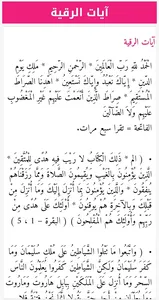 آيات الرقية
آيات الرقية
الْحَمْدُ للهِ رَبِّ الْعَالَمِينَ * الرَّحْمنِ الرَّحِيمِ * مَلِكِ يَوْمِ
الدِّينِ * إِيَّاكَ نَعْبُدُ وإِيَّاكَ نَسْتَعِينُ * اهْدِنَا الصِّرَاطَ
الْمُسْتَقِيمَ * صِرَاطَ الَّذِينَ أَنْعَمْتَ عَلَيْهِمْ غَيْرِ الْمَغْضُوبِ
عَلَيْهِمْ وَلاَ الضَّالِّينَ
الفاتحة * تقرأ سبع مرات.
• ( الم * ذَلِكَ الْكِتَابُ لا رَيْبَ فِيهِ هُدًى لِلْمُتَّقِينَ *
الَّذِينَ يُؤْمِنُونَ بِالْغَيْبِ وَيُقِيمُونَ الصَّلاةَ وَمِمَّا رَزَقْنَاهُمْ
يُنْفِقُونَ * وَالَّذِينَ يُؤْمِنُونَ بِمَا أُنْزِلَ إِلَيْكَ وَمَا أُنْزِلَ مِنْ
قَبْلِكَ وَبِالآخِرَةِ هُمْ يُوقِنُونَ * أُولَئِكَ عَلَى هُدًى مِنْ
رَبِّهِمْ وَأُولَئِكَ هُمُ الْمُفْلِحُونَ ) ( البقرة – 1 ، 5 )
• ( وَاتَّبَعُوا مَا تَتْلُوا الشَّيَاطِينُ عَلَى مُلْكِ سُلَيْمَانَ وَمَا
كَفَرَ سُلَيْمَانُ وَلَكِنَّ الشَّيَاطِينَ كَفَرُوا يُعَلِّمُونَ النَّاسَ
السِّحْرَ وَمَا أُنْزِلَ عَلَى الْمَلَكَيْنِ بِبَابِلَ هَارُوتَ وَمَارُوتَ